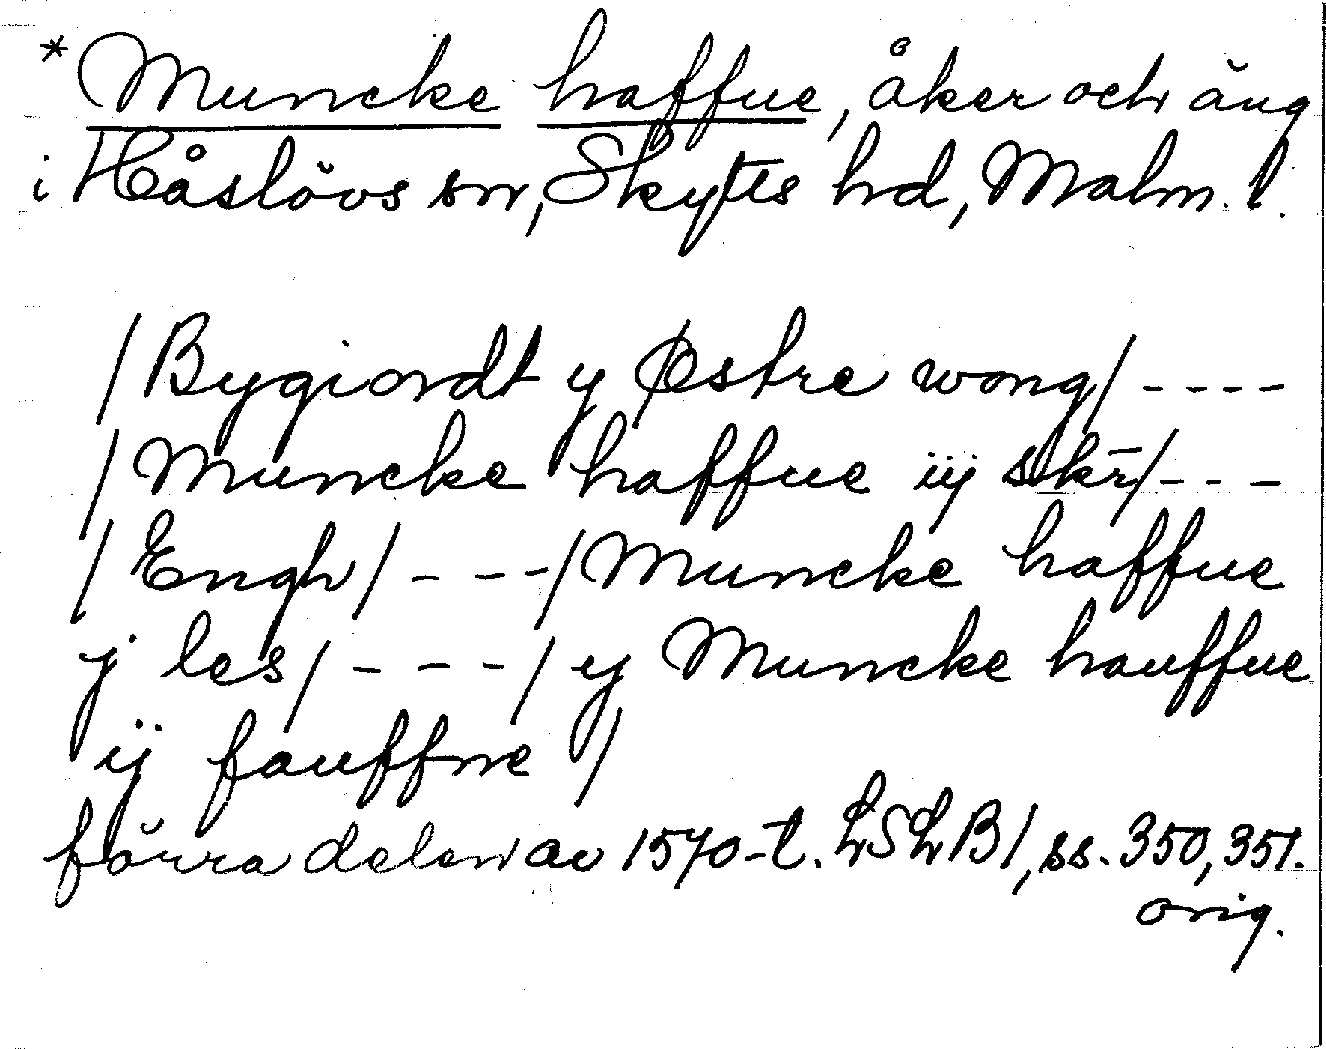 * Muncke haffue, åker och äng
i Håslövs sn, Skytts hd, Malm. l.
/Bygiordt y Østre wong/ ----
/Muncke haffue iij skr̄/---
/Engh/ ---/Muncke haffue
j les/ ---/ y Muncke hauffue
ij fauffne /
förra delen av 1570-t. LSLB1, ss. 350, 351.
orig.